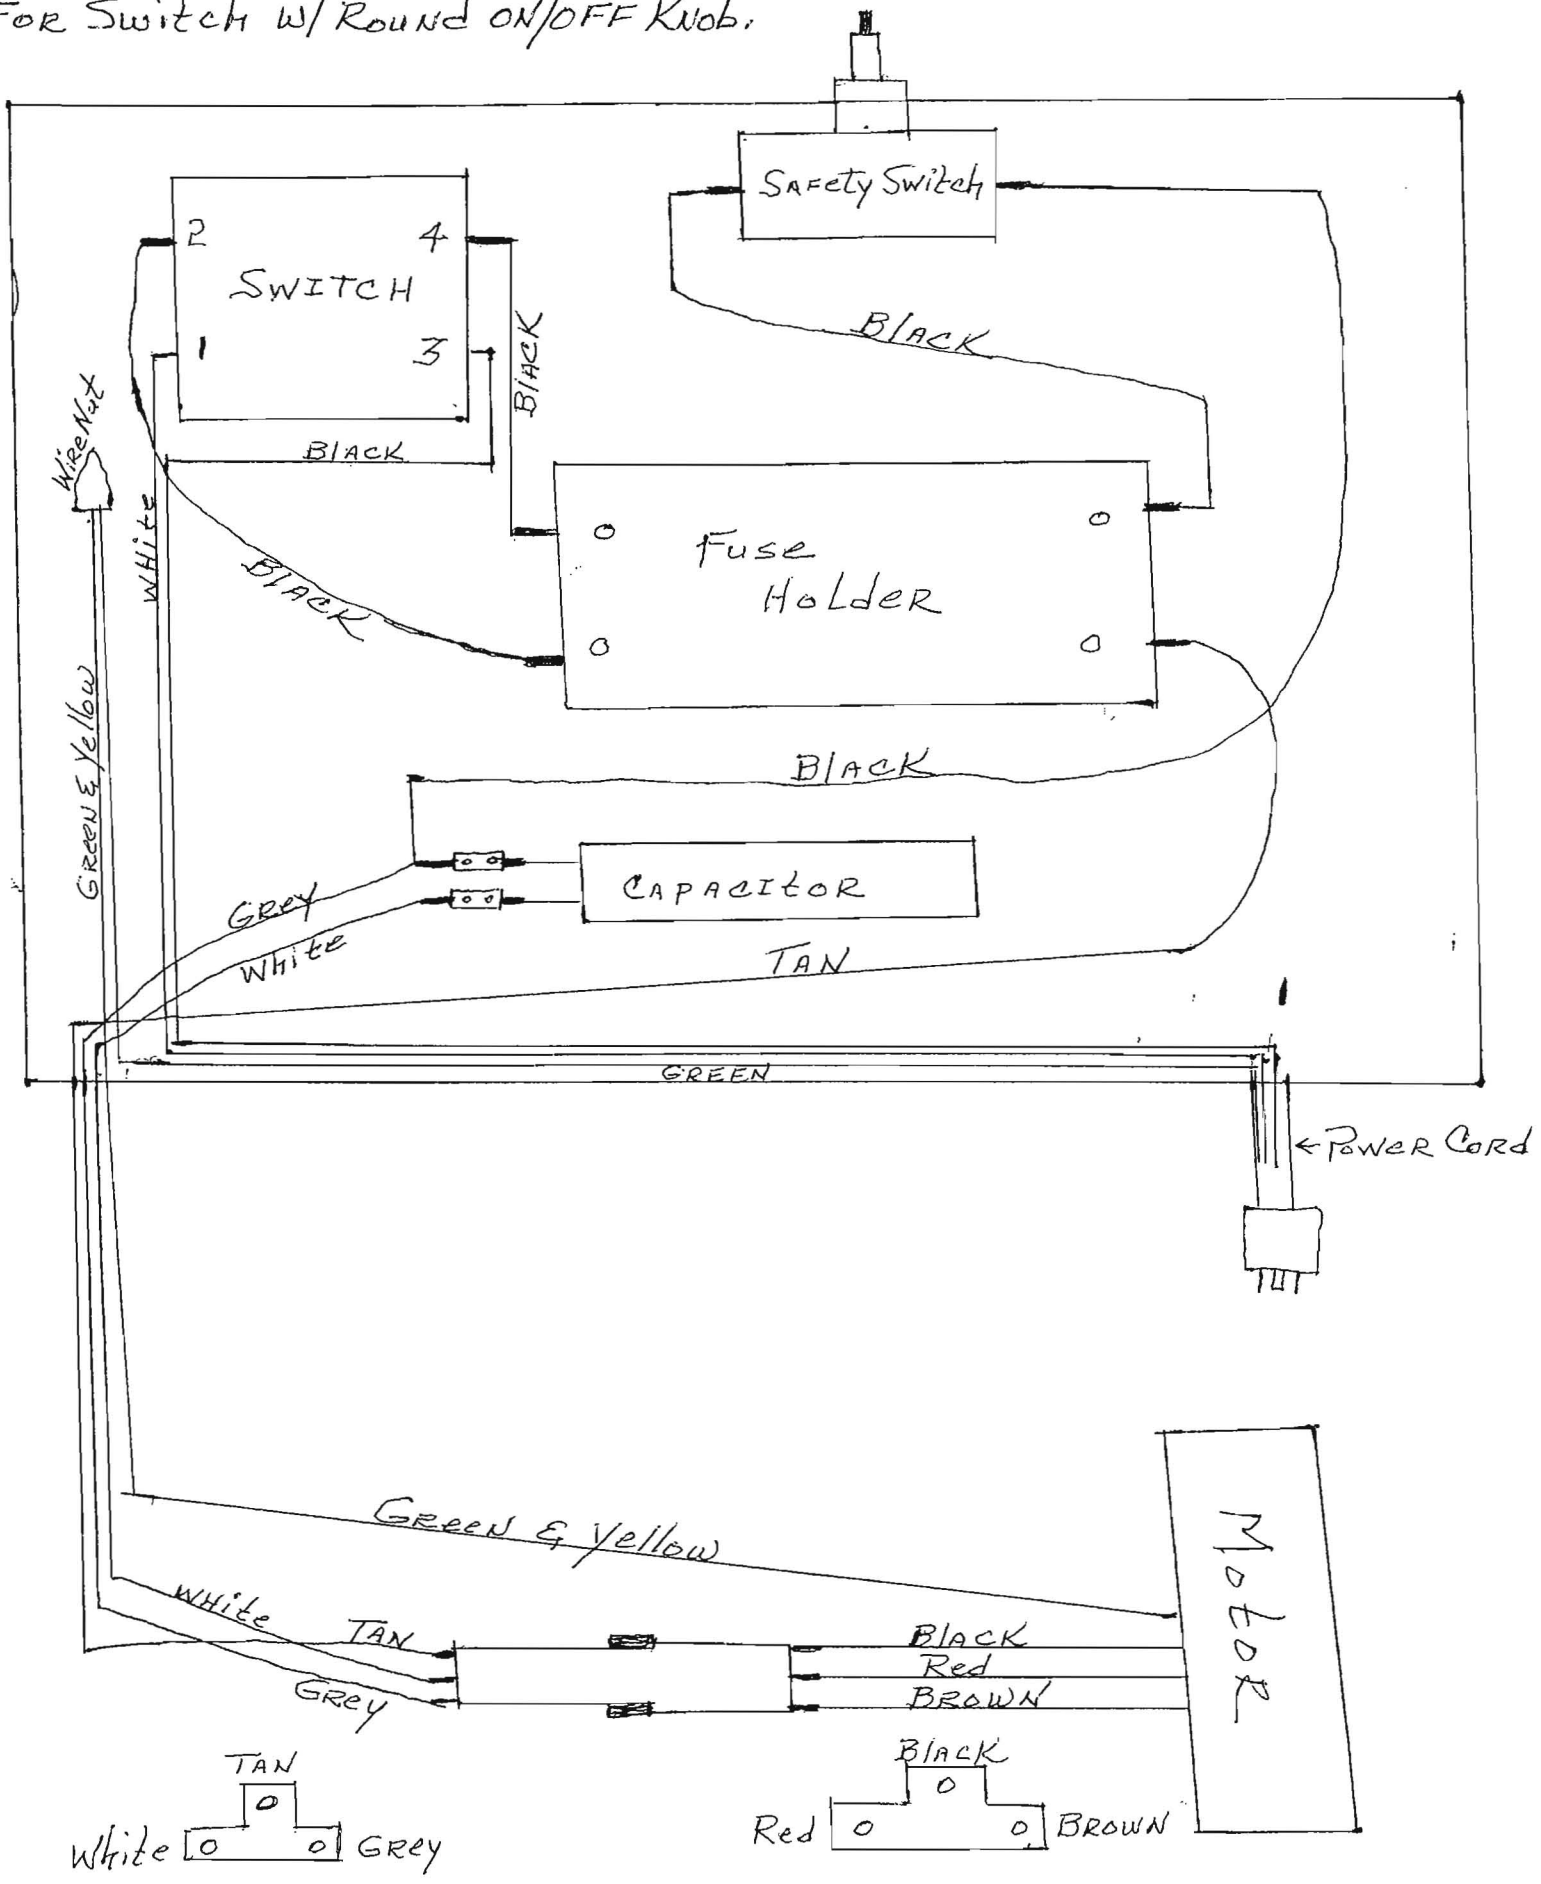 FOR Switch W/ Round ON/OFF Knob.
Safety Switch
2
4
SWITCH
1
3
BLACK
BLACK
BLACK
Wire Nut
White
BLACK
Fuse
Holder
Green & Yellow
BLACK
Grey
White
CAPACItOR
TAN
GREEN
← Power Cord
Green & Yellow
White
TAN
Grey
BLACK
Red
BROWN
Motor
TAN
White
Grey
Black
Red
BROWN